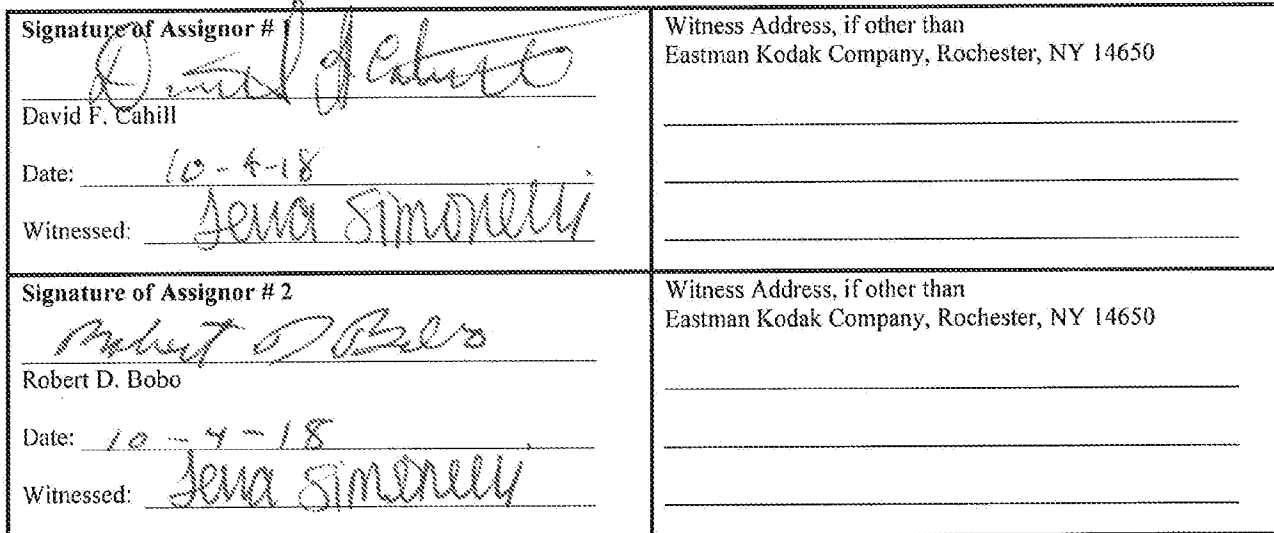 Signature of Assignor # 1
David F. Cahill
David F. Cahill
Date: 10-4-18
Witnessed: Jena Simonelli
Witness Address, if other than
Eastman Kodak Company, Rochester, NY 14650
Signature of Assignor # 2
Robert D Bobo
Robert D. Bobo
Date: 10-4-18
Witnessed: Jena Simonelli
Witness Address, if other than
Eastman Kodak Company, Rochester, NY 14650